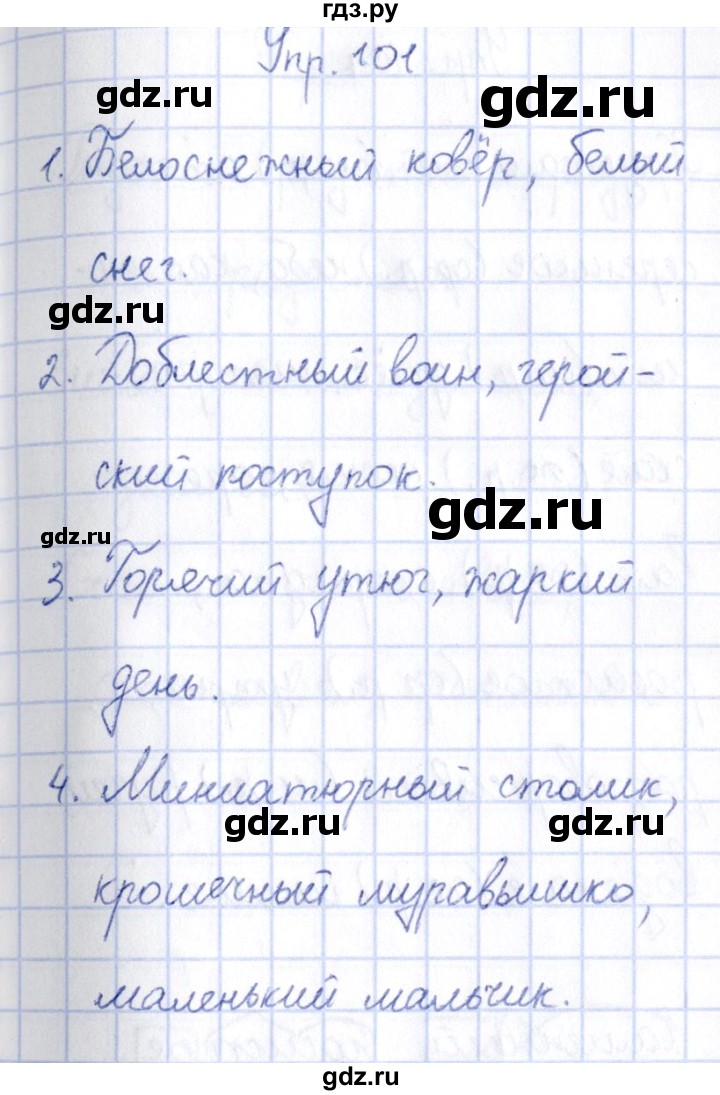 гдз.ру
Упр. 101
gdz.ru
gdz.ru
1. Белоснежный ковёр, белый
снег.
gdz.ru
2. Доблестный воин, герой-
ский поступок.
gdz.ru
gdz.ru
3. Горячий утюг, жаркий
день.
4. Миниатюрный столик,
gdz.ru
gdz.ru
крошечный муравьишко,
маленький мальчик.
gdz.ru